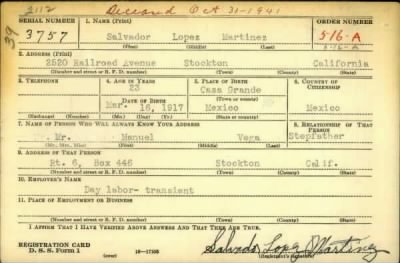 2112 Deceased Oct 31-1941
39
SERIAL NUMBER 1. NAME (Print) ORDER NUMBER
3757 Salvador Lopez Martinez 516-A
(First) (Middle) (Last)
2. ADDRESS (Print)
2520 Railroad Avenue Stockton California
(Number and street or R. F. D. number) (Town) (County) (State)
3. TELEPHONE 4. AGE IN YEARS 5. PLACE OF BIRTH 6. COUNTRY OF CITIZENSHIP
23 Casa Grande
DATE OF BIRTH (Town or county)
Mar. 16, 1917 Mexico Mexico
(Exchange) (Number) (Mo.) (Day) (Yr.) (State or country)
7. NAME OF PERSON WHO WILL ALWAYS KNOW YOUR ADDRESS 8. RELATIONSHIP OF THAT PERSON
Mr. Manuel Vera Stepfather
(Mr., Mrs., Miss) (First) (Middle) (Last)
9. ADDRESS OF THAT PERSON
Rt. 6, Box 446 Stockton Calif.
(Number and street or R. F. D. number) (Town) (County) (State)
10. EMPLOYER'S NAME
Day labor- transient
11. PLACE OF EMPLOYMENT OR BUSINESS
(Number and street or R. F. D. number) (Town) (County) (State)
I AFFIRM THAT I HAVE VERIFIED ABOVE ANSWERS AND THAT THEY ARE TRUE.
REGISTRATION CARD
D. S. S. Form 1 (over) 16—17105 Salvador Lopez Martinez
(Registrant's signature)